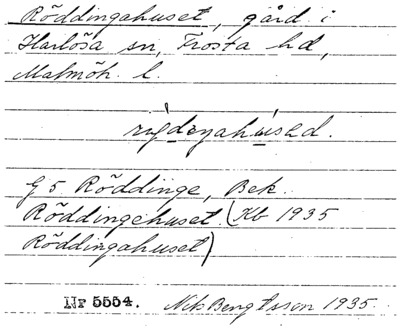 Röddingahuset, gård i
Harlösa sn, Frosta hd,
Malmöh. l.
G 5 Röddinge, Bek.
Röddingehuset (Kb 1935
Röddingahuset)
Nr 5554. Nils Bengtsson 1935.